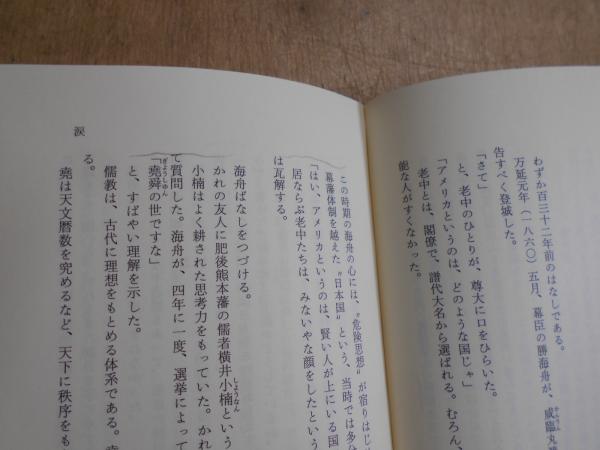 わずか百三十二年前のはなしである。
万延元年（一八六〇）五月、幕臣の勝海舟が、咸臨丸
告すべく登城した。
「さて」
と、老中のひとりが、尊大に口をひらいた。
「アメリカというのは、どのような国じゃ」
老中とは、閣僚で、譜代大名から選ばれる。むろん、
能な人がすくなかった。
この時期の海舟の心には、〝危険思想〟が宿りはじ
幕藩体制を越えた〝日本国〟という、当時では多分
「はい、アメリカというのは、賢い人が上にいる国
居ならぶ老中たちは、みないやな顔をしたという
は瓦解する。
海舟ばなしをつづける。
かれの友人に肥後熊本藩の儒者横井小楠という
しょうなん
小楠はよく耕された思考力をもっていた。かれ
て質問した。海舟が、四年に一度、選挙によって
「堯舜の世ですな」
ぎょうしゅん
と、すばやい理解を示した。
儒教は、古代に理想をもとめる体系である。
堯は天文暦数を究めるなど、天下に秩序をも
る。
涙